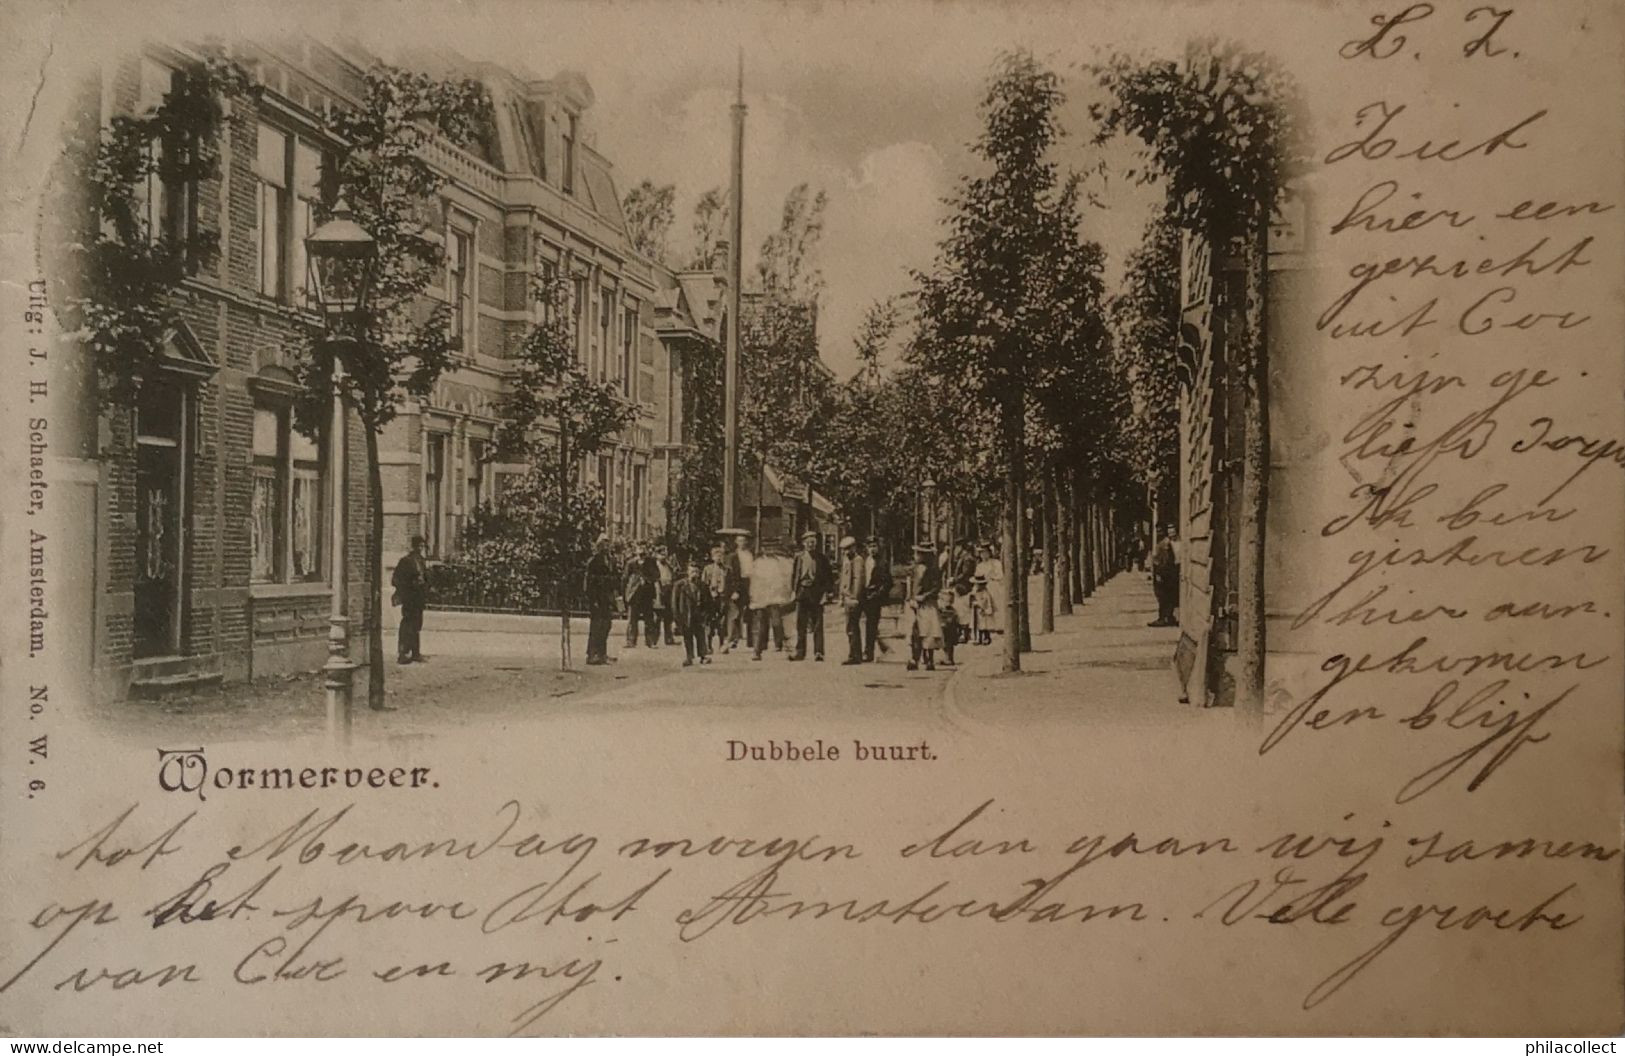 L. Z.
Ziet
hier een
gezicht
uit Cor
zijn ge-
liefd dorp
Ik ben
gisteren
hier aan-
gekomen
en blijf
Uitg: J. H. Schaefer, Amsterdam. No. W. 6.
Wormerveer.
Dubbele buurt.
tot Maandag morgen dan gaan wij samen
op het spoor tot Amsterdam. Vele groete
van Cor en mij.
philacollect